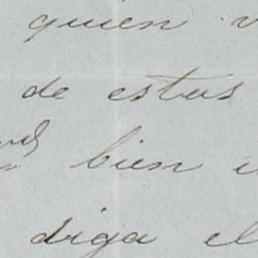 quien
de estas
bien
diga el